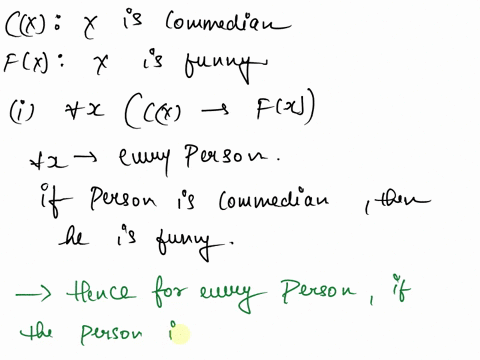 C(x): x is commedian
F(x): x is funny
(i) ∀x (C(x) → F(x))
∀x → every Person.
if Person is Commedian, then
he is funny.
→ Hence for every Person, if
the person i